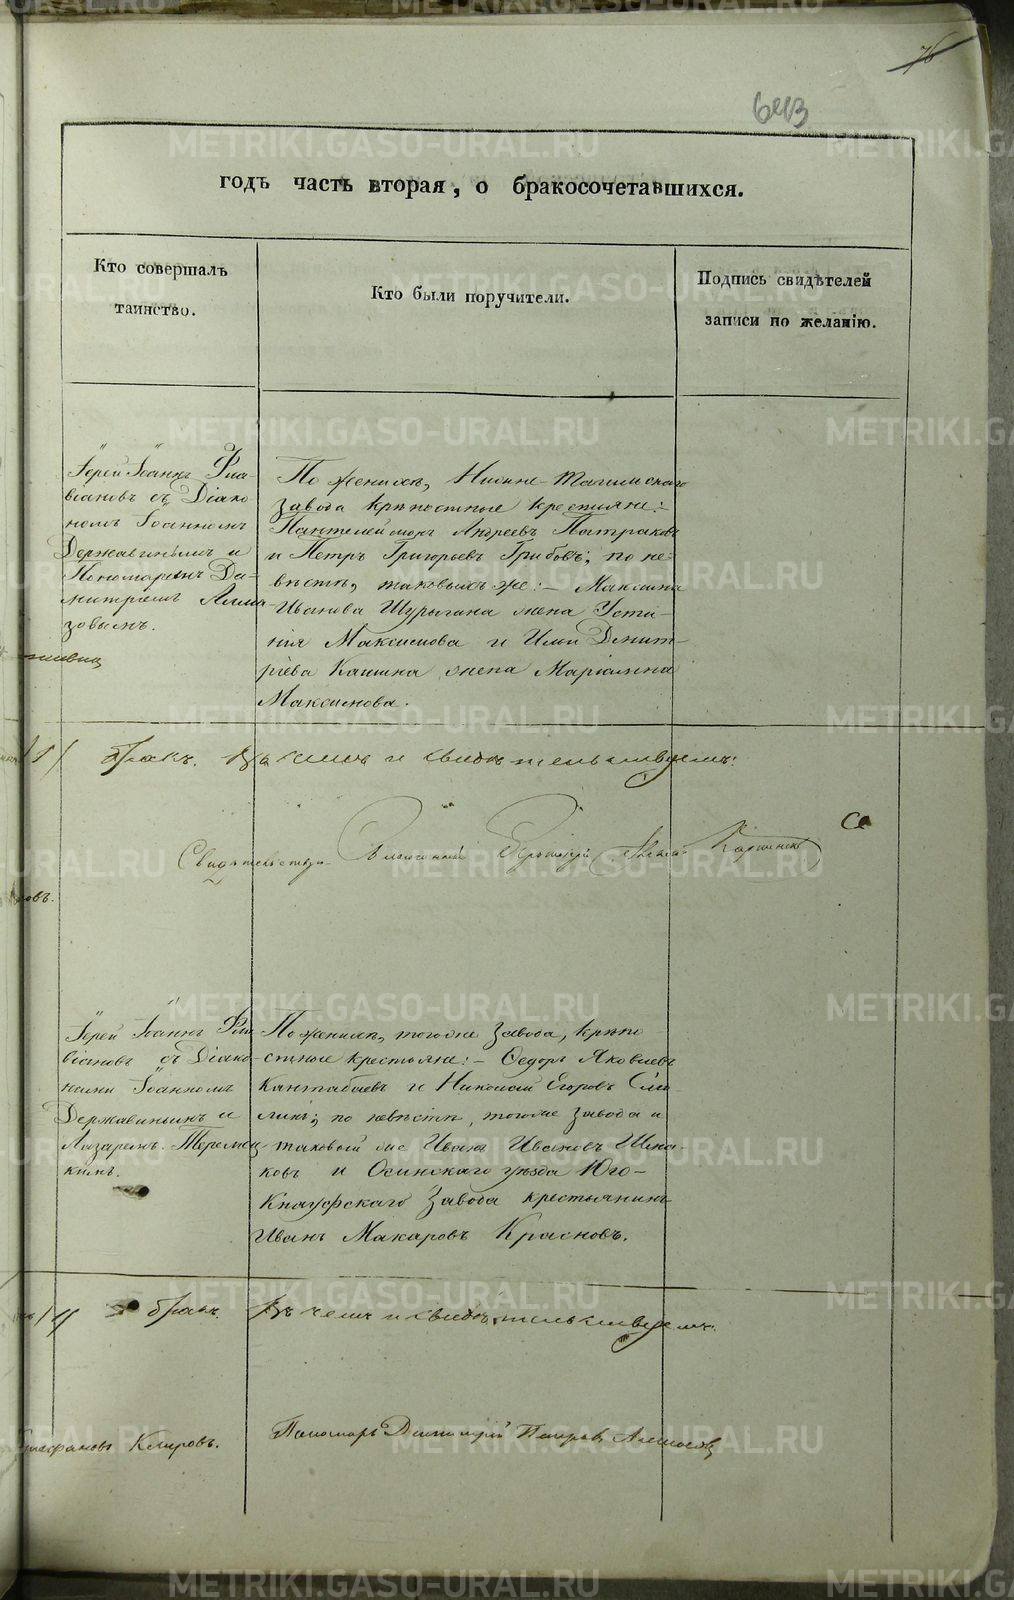 76
643
годъ часть вторая, о бракосочетавшихся.
Кто совершалъ
таинство.
Кто были поручители.
Подпись свидѣтелей
записи по желанію.
Іерей Іоаннъ Фла-
віановъ съ Діако-
номъ Іоанномъ
Державинымъ и
Пономаремъ Ди-
митріемъ Алма-
зовымъ.
По женихѣ, Нижне-Тагильскаго
завода крѣпостные крестьяне:
Пантелеймонъ Андреевъ Патраковъ
и Петръ Григорьевъ Грибовъ; по не-
вѣстѣ, таковыхъ же: - Максима
Иванова Шурыгина жена Усти-
нія Максимова и Ильи Димит-
ріева Кашина жена Маріамна
Максимова.
бракъ. Въ чемъ и свидѣтельствуемъ:
Свидѣтельствую Благочинный Протоіерей
Іерей Іоаннъ Фла-
віановъ съ Діако-
Іоанномъ
Державинымъ и
Лазаремъ Теремец
кимъ.
По женихѣ, тогоже завода, крѣпо
стные крестьяне: - Ѳедоръ Яковлевъ
Кантабаевъ и Николай Егоровъ
по невѣстѣ, тогоже завода и
таковый же Иванъ Ивановъ
ковъ и Осинскаго уѣзда Юго-
Кнауфскаго завода крестьянинъ
Иванъ Макаровъ Красновъ.
бракъ. Въ чемъ и свидѣтельствуемъ:
Стефановъ Кыровъ.
Пономарь Димитрій Петровъ Алмазовъ
METRIKI.GASO-URAL.RU